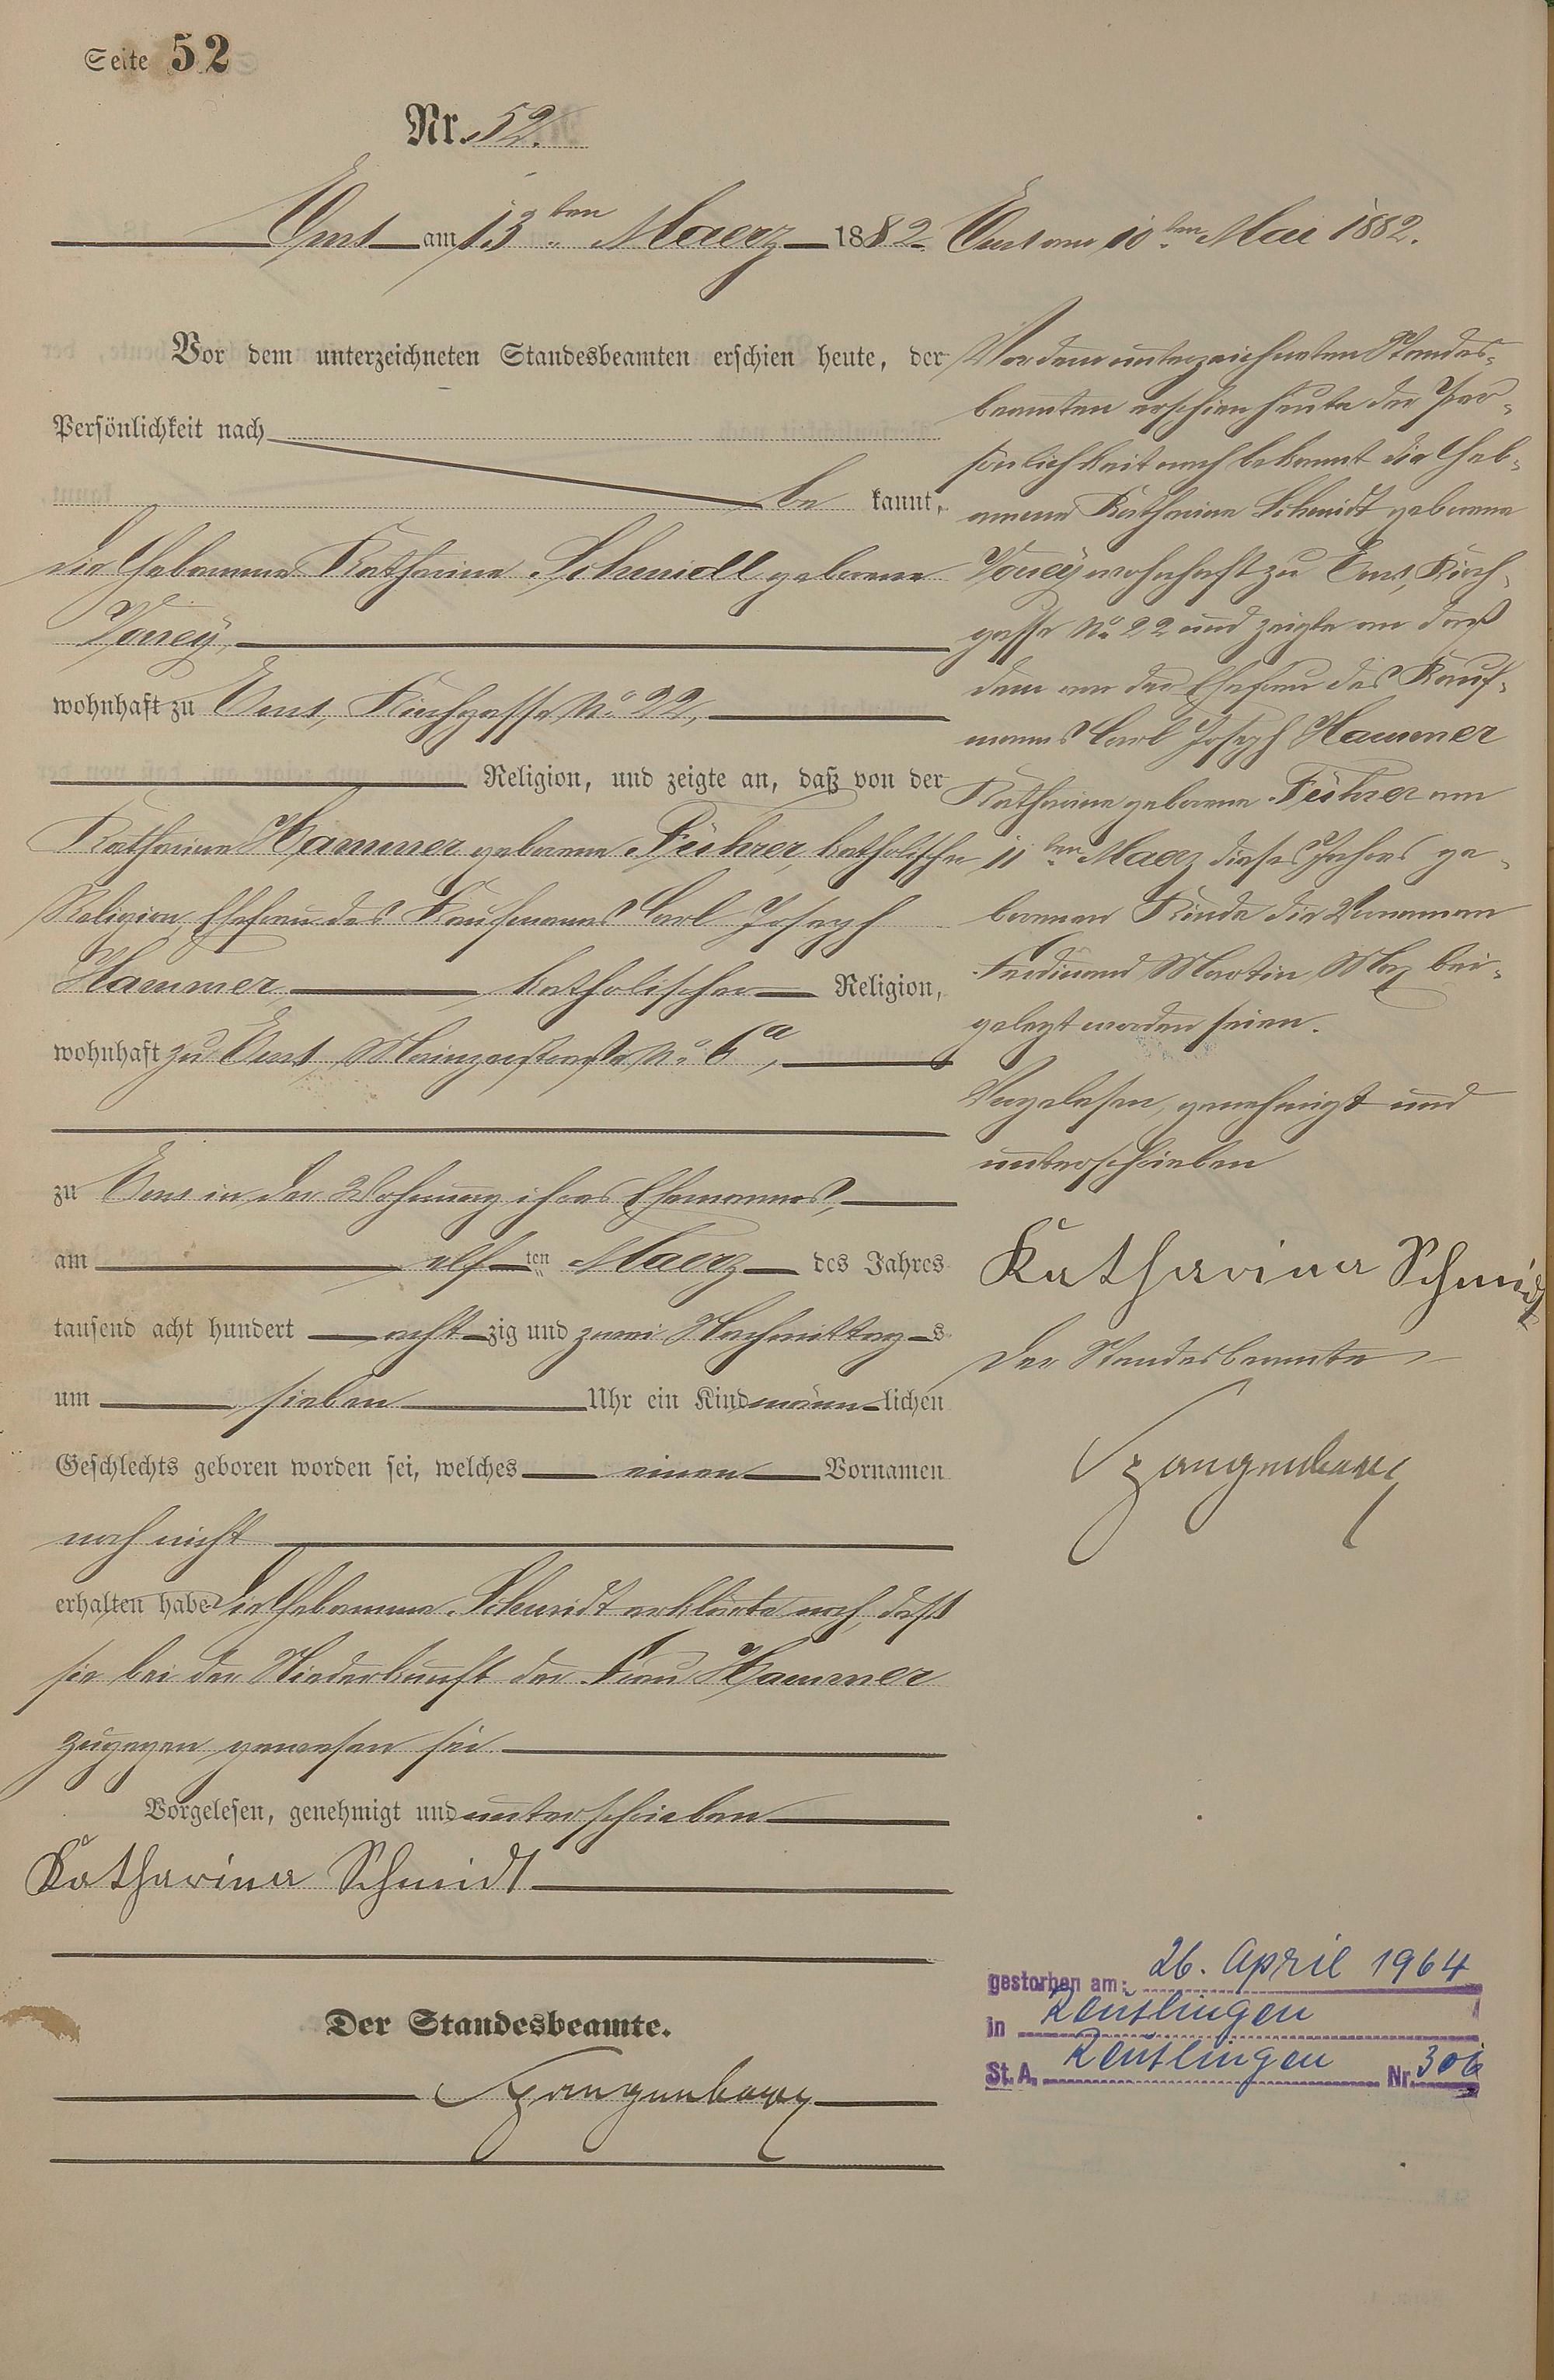 Seite 52
Nr. 52.
Ems am 13ten Maerz 1882.
Vor dem unterzeichneten Standesbeamten erschien heute, der
Persönlichkeit nach
be kannt,
die Hebamme Katharina Schmidt geborene
wohnhaft zu Ems, Kirchgasse No 22,
Religion, und zeigte an, daß von der
Katharina Hammer geborene Führer, katholischer
Religion, Ehefrau des Kaufmanns Carl Joseph
Hammer katholischer Religion,
wohnhaft zu Ems, Mainzerstraße No 6a,
zu Ems in der Wohnung ihres Ehemannes,
am elf ten Maerz des Jahres
tausend acht hundert acht zig und zwei Nachmittag s
um sieben Uhr ein Kind männ lichen
Geschlechts geboren worden sei, welches einen Vornamen
noch nicht
erhalten habe Die Hebamme Schmidt erklärte noch, daß
sie bei der Niederkunft der Frau Hammer
zugegen gewesen sei
Vorgelesen, genehmigt und unterschrieben
Katharina Schmidt
Der Standesbeamte.
Ems am 10ten Mai 1882.
Vor dem unterzeichneten Standes-
beamten erschien heute der Per-
sönlichkeit nach bekannt die Heb-
amme Katharina Schmidt geborene
wohnhaft zu Ems, Kirch-
gasse No 22 und zeigte an daß
dem von der Ehefrau des Kauf-
manns Carl Joseph Hammer
Katharina geborene Führer am
11ten Maerz dieses Jahres ge-
borenen Kinde die Vornamen
Ferdinand Martin Max bei-
gelegt worden seien.
Vorgelesen, genehmigt und
unterschrieben
Katharina Schmidt
Der Standesbeamte
gestorben am: 26. April 1964
in Reutlingen
St. A. Reutlingen Nr. 306